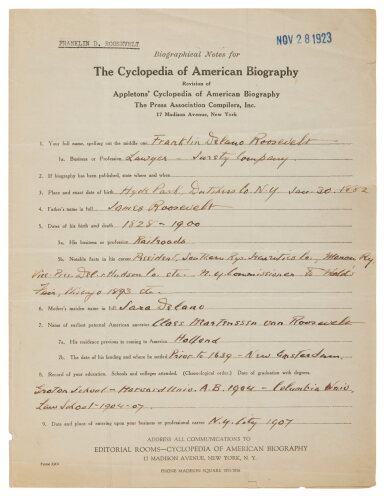 FRANKLIN D. ROOSEVELT
NOV 28 1923
Biographical Notes for
The Cyclopedia of American Biography
Revision of
Appletons' Cyclopedia of American Biography
The Press Association Compilers, Inc.
17 Madison Avenue, New York
1. Your full name, spelling out the middle one Franklin Delano Roosevelt
1a. Business or Profession Lawyer - Surety Company
2. If biography has been published, state where and when
3. Place and exact date of birth Hyde Park, Dutchess Co N.Y Jan. 30. 1882
4. Father's name in full James Roosevelt
5. Dates of his birth and death 1828 - 1900
5a. His business or profession Railroads
5b. Notable facts in his career President, Southern Rys. Securities Co,
Vice Pres. Del. & Hudson Co. etc. N.Y Commissioner to World's
Fair, Chicago 1893 etc.
6. Mother's maiden name in full Sara Delano
7. Name of earliest paternal American ancestor Claes Martenssen van Roosevelt
7a. His residence previous to coming to America Holland
7b. The date of his landing and where he settled Prior to 1639 - New Amsterdam
8. Record of your education. Schools and colleges attended. (Chronological order.) Date of graduation with degrees.
Groton School - Harvard Univ. A.B. 1904 - Columbia Univ.
Law School - 1904-07.
9. Date and place of entering upon your business or present career N.Y. City 1907
ADDRESS ALL COMMUNICATIONS TO
EDITORIAL ROOMS—CYCLOPEDIA OF AMERICAN BIOGRAPHY
17 MADISON AVENUE, NEW YORK, N. Y.
PHONE MADISON SQUARE